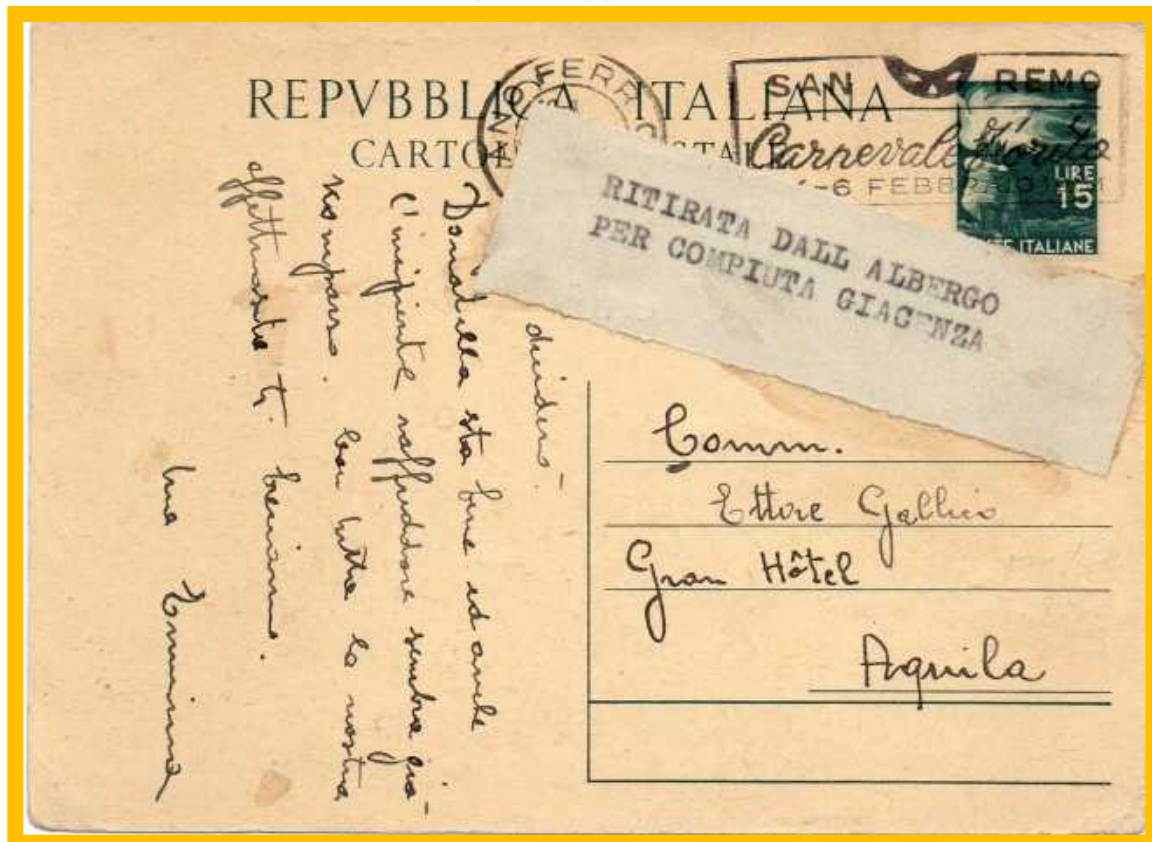 REPVBBLICA ITALIANA
SAN REMO
Carnevale
-6 FEBB
LIRE
15
ITALIANE
RITIRATA DALL ALBERGO
PER COMPIUTA GIACENZA
Comm.
Ettore Gallico
Gran Hôtel
Aquila
Donatella sta bene ed anche
l'incipiente raffreddore sembra già
scomparso. Con tutta la nostra
affettuosità ti baciamo.
tua